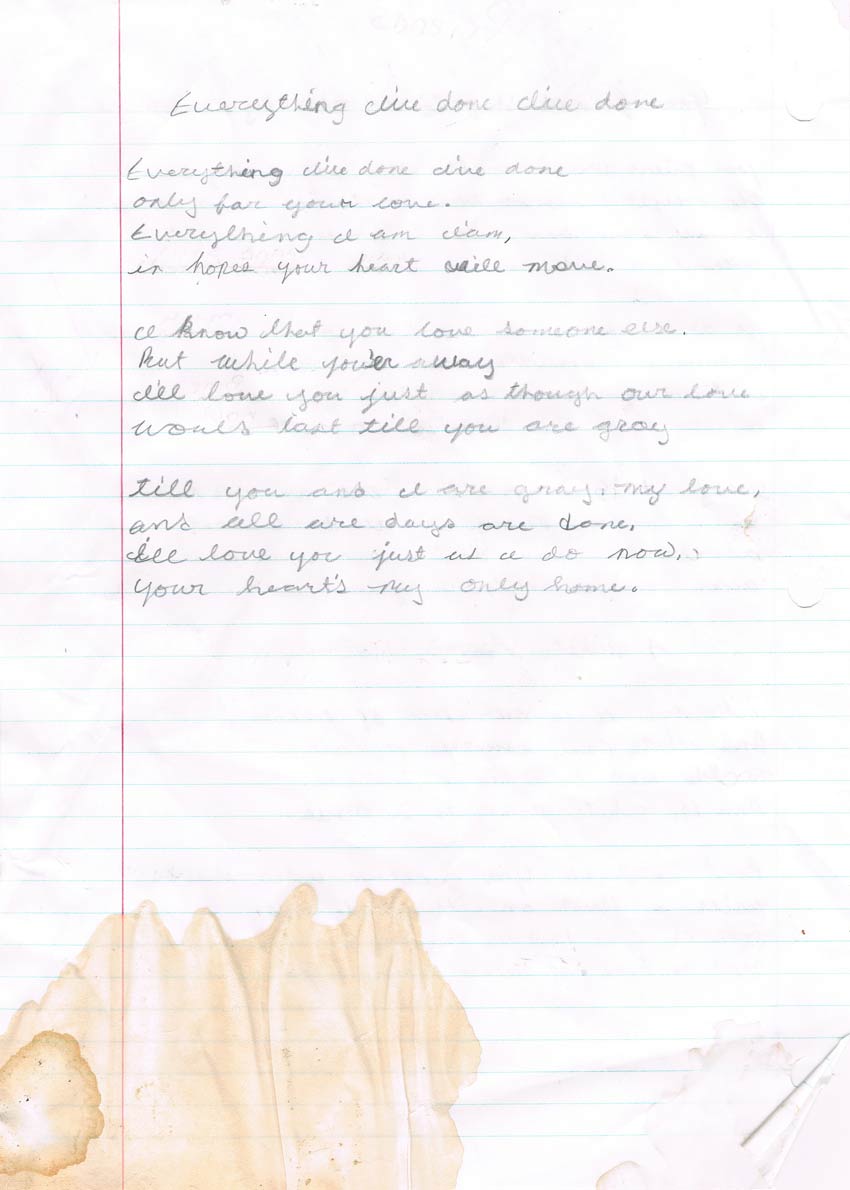 Everything I've done I've done
Everything I've done I've done
only for your love.
Everything I am I am,
in hopes your heart will move.
I know that you love someone else.
But while you'er away
I'll love you just as though our love
would last till you are gray
till you and I are gray, my love,
and all are days are done,
I'll love you just as I do now,
your heart's my only home.